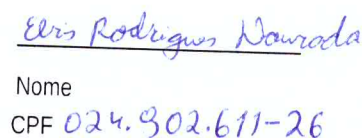 Elvis Rodrigues Dourado
Nome
CPF 024.902.611-26